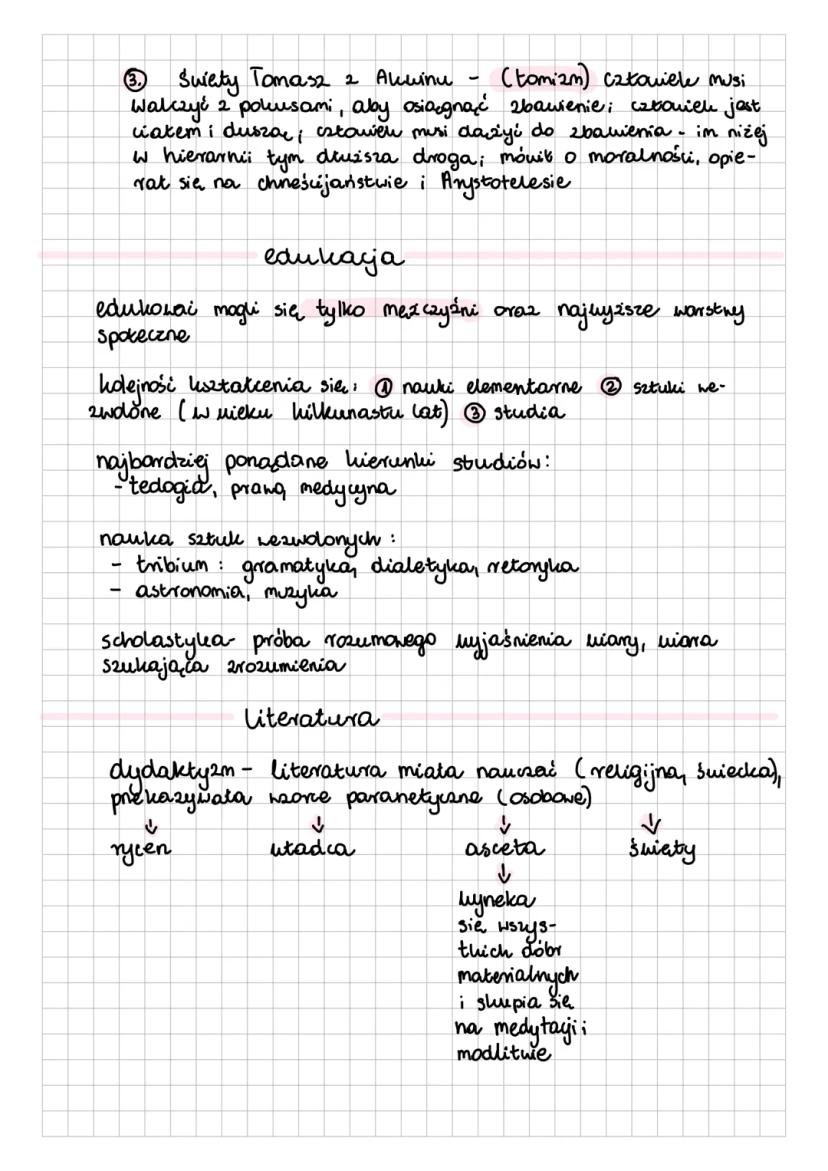 3. Święty Tomasz z Akwinu - (tomizm) człowiek musi
walczyć z pokusami, aby osiągnąć zbawienie; człowiek jest
ciałem i duszą; człowiek musi dążyć do zbawienia - im niżej
w hierarhii tym dłuższa droga; mówił o moralności, opie-
rał się na chrześcijaństwie i Arystotelesie
edukacja
edukować mogli się tylko mężczyźni oraz najwyższe warstwy
społeczne
kolejność kształcenia się: ① nauki elementarne ② sztuki we-
zwolone (w wieku kilkunastu lat) ③ studia
najbardziej porządane kierunki studiów:
- teologia, prawo, medycyna
nauka sztuk wezwolonych:
- tribium: gramatyka, dialetyka, retoryka
- astronomia, muzyka
scholastyka - próba rozumowego wyjaśnienia wiary, wiara
szukająca zrozumienia
literatura
dydaktyzm - literatura miała nauczać (religijna, świecka),
przekazywała wzorce paranetyczne (osobowe)
↓ ↓ ↓ ↓
rycerz władca asceta święty
↓
wyrzeka
się wszys-
tkich dóbr
materialnych
i skupia się
na medytacji i
modlitwie